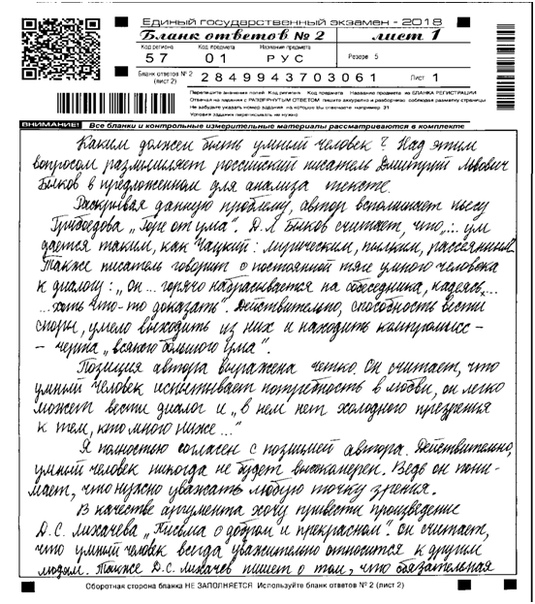 Единый государственный экзамен - 2018
Бланк ответов № 2 лист 1
Код региона Код предмета Название предмета
57 01 РУС Резерв - 5
Бланк ответов № 2 (лист 2) 2849943703061 Лист 1
Перепишите значения полей Код региона Код предмета Название предмета из БЛАНКА РЕГИСТРАЦИИ
Отвечая на задания с РАЗВЕРНУТЫМ ОТВЕТОМ пишите аккуратно и разборчиво соблюдая разметку страницы
Не забудьте указать номер задания на которое Вы отвечаете например 31
Условия задания переписывать не нужно
ВНИМАНИЕ! Все бланки и контрольные измерительные материалы рассматриваются в комплекте
Каким должен быть умный человек? Над этим
вопросом размышляет российский писатель Дмитрий Львович
Быков в предложенном для анализа тексте.
Раскрывая данную проблему, автор вспоминает пьесу
Грибоедова „Горе от ума". Д.Л Быков считает, что „... ум
дается таким, как Чацкий: лирическим, пылким, рассеянным".
Также писатель говорит о постоянной тяге умного человека
к диалогу: „он ... горячо набрасывается на собеседника, надеясь...
...хоть что-то доказать". Действительно, способность вести
споры, умело выходить из них и находить компромисс -
- черта „всякого большого ума".
Позиция автора выражена четко. Он считает, что
умный человек испытывает потребность в любви, он легко
может вести диалог и „в нем нет холодного презрения
к тем, кто много ниже..."
Я полностью согласен с позицией автора. Действительно,
умный человек никогда не будет высокомерен. Ведь он пони-
мает, что нужно уважать любую точку зрения.
В качестве аргумента хочу привести произведение
Д.С. Лихачева „Письма о добром и прекрасном". Он считает,
что умный человек всегда уважительно относится к другим
людям. Также Д.С. Лихачев пишет о том, что обязательная
Оборотная сторона бланка НЕ ЗАПОЛНЯЕТСЯ Используйте бланк ответов № 2 (лист 2)